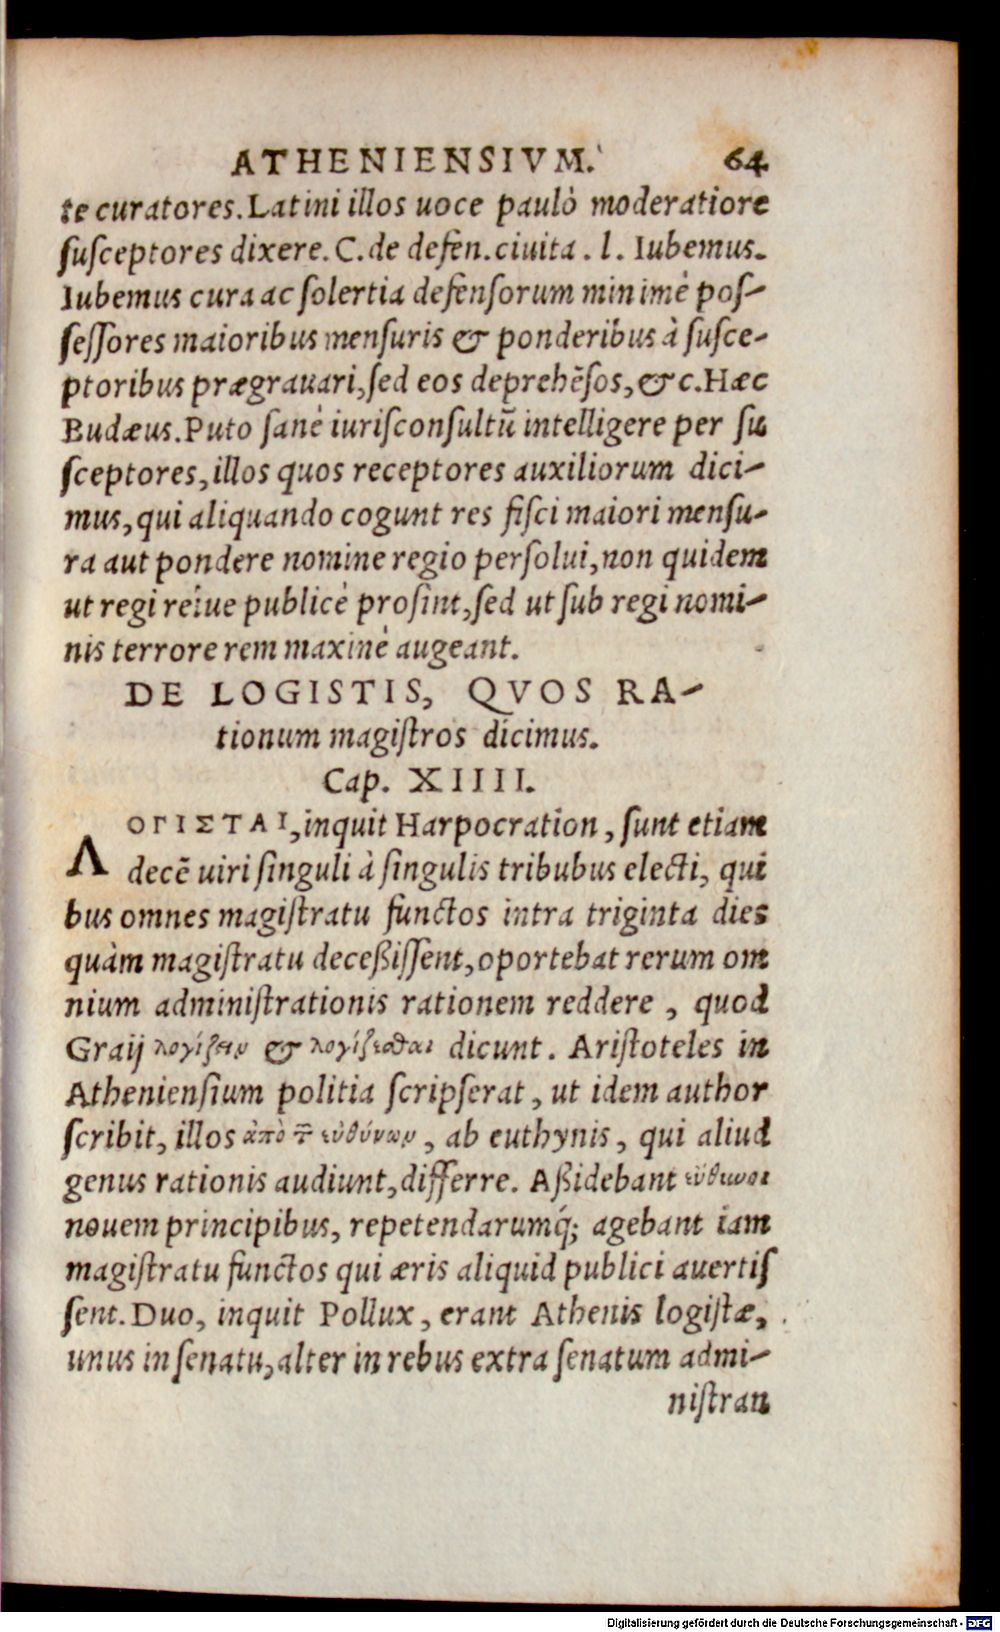 ATHENIENSIVM. 64
te curatores. Latini illos uoce paulò moderatiore
ſuſceptores dixere. C. de defen. ciuita. l. Iubemus.
Iubemus cura ac ſolertia defenſorum minimè poſ-
ſeſſores maioribus menſuris & ponderibus à ſuſce-
ptoribus prægrauari, ſed eos deprehẽſos, &c. Hæc
Budæus. Puto ſanè iuriſconſultũ intelligere per ſu
ſceptores, illos quos receptores auxiliorum dici-
mus, qui aliquando cogunt res fiſci maiori menſu-
ra aut pondere nomine regio perſolui, non quidem
ut regi reíue publicè proſint, ſed ut ſub regi nomi-
nis terrore rem maxinè augeant.
DE LOGISTIS, QVOS RA-
tionum magiſtros dicimus.
Cap. XIIII.
ΛΟΓΙΣΤΑΙ, inquit Harpocration, ſunt etiam
decẽ uiri ſinguli à ſingulis tribubus electi, qui
bus omnes magiſtratu functos intra triginta dies
quàm magiſtratu deceßiſſent, oportebat rerum om
nium adminiſtrationis rationem reddere, quod
Graij λογίζειν & λογίζεσθαι dicunt. Ariſtoteles in
Athenienſium politia ſcripſerat, ut idem author
ſcribit, illos ἀπὸ τ̃ εὐθύνων, ab euthynis, qui aliud
genus rationis audiunt, differre. Aßidebant εὔθυνοι
nouem principibus, repetendarumq́; agebant iam
magiſtratu functos qui æris aliquid publici auertiſ
ſent. Duo, inquit Pollux, erant Athenis logiſtæ,
unus in ſenatu, alter in rebus extra ſenatum admi-
niſtran
Digitalisierung gefördert durch die Deutsche Forschungsgemeinschaft - DFG